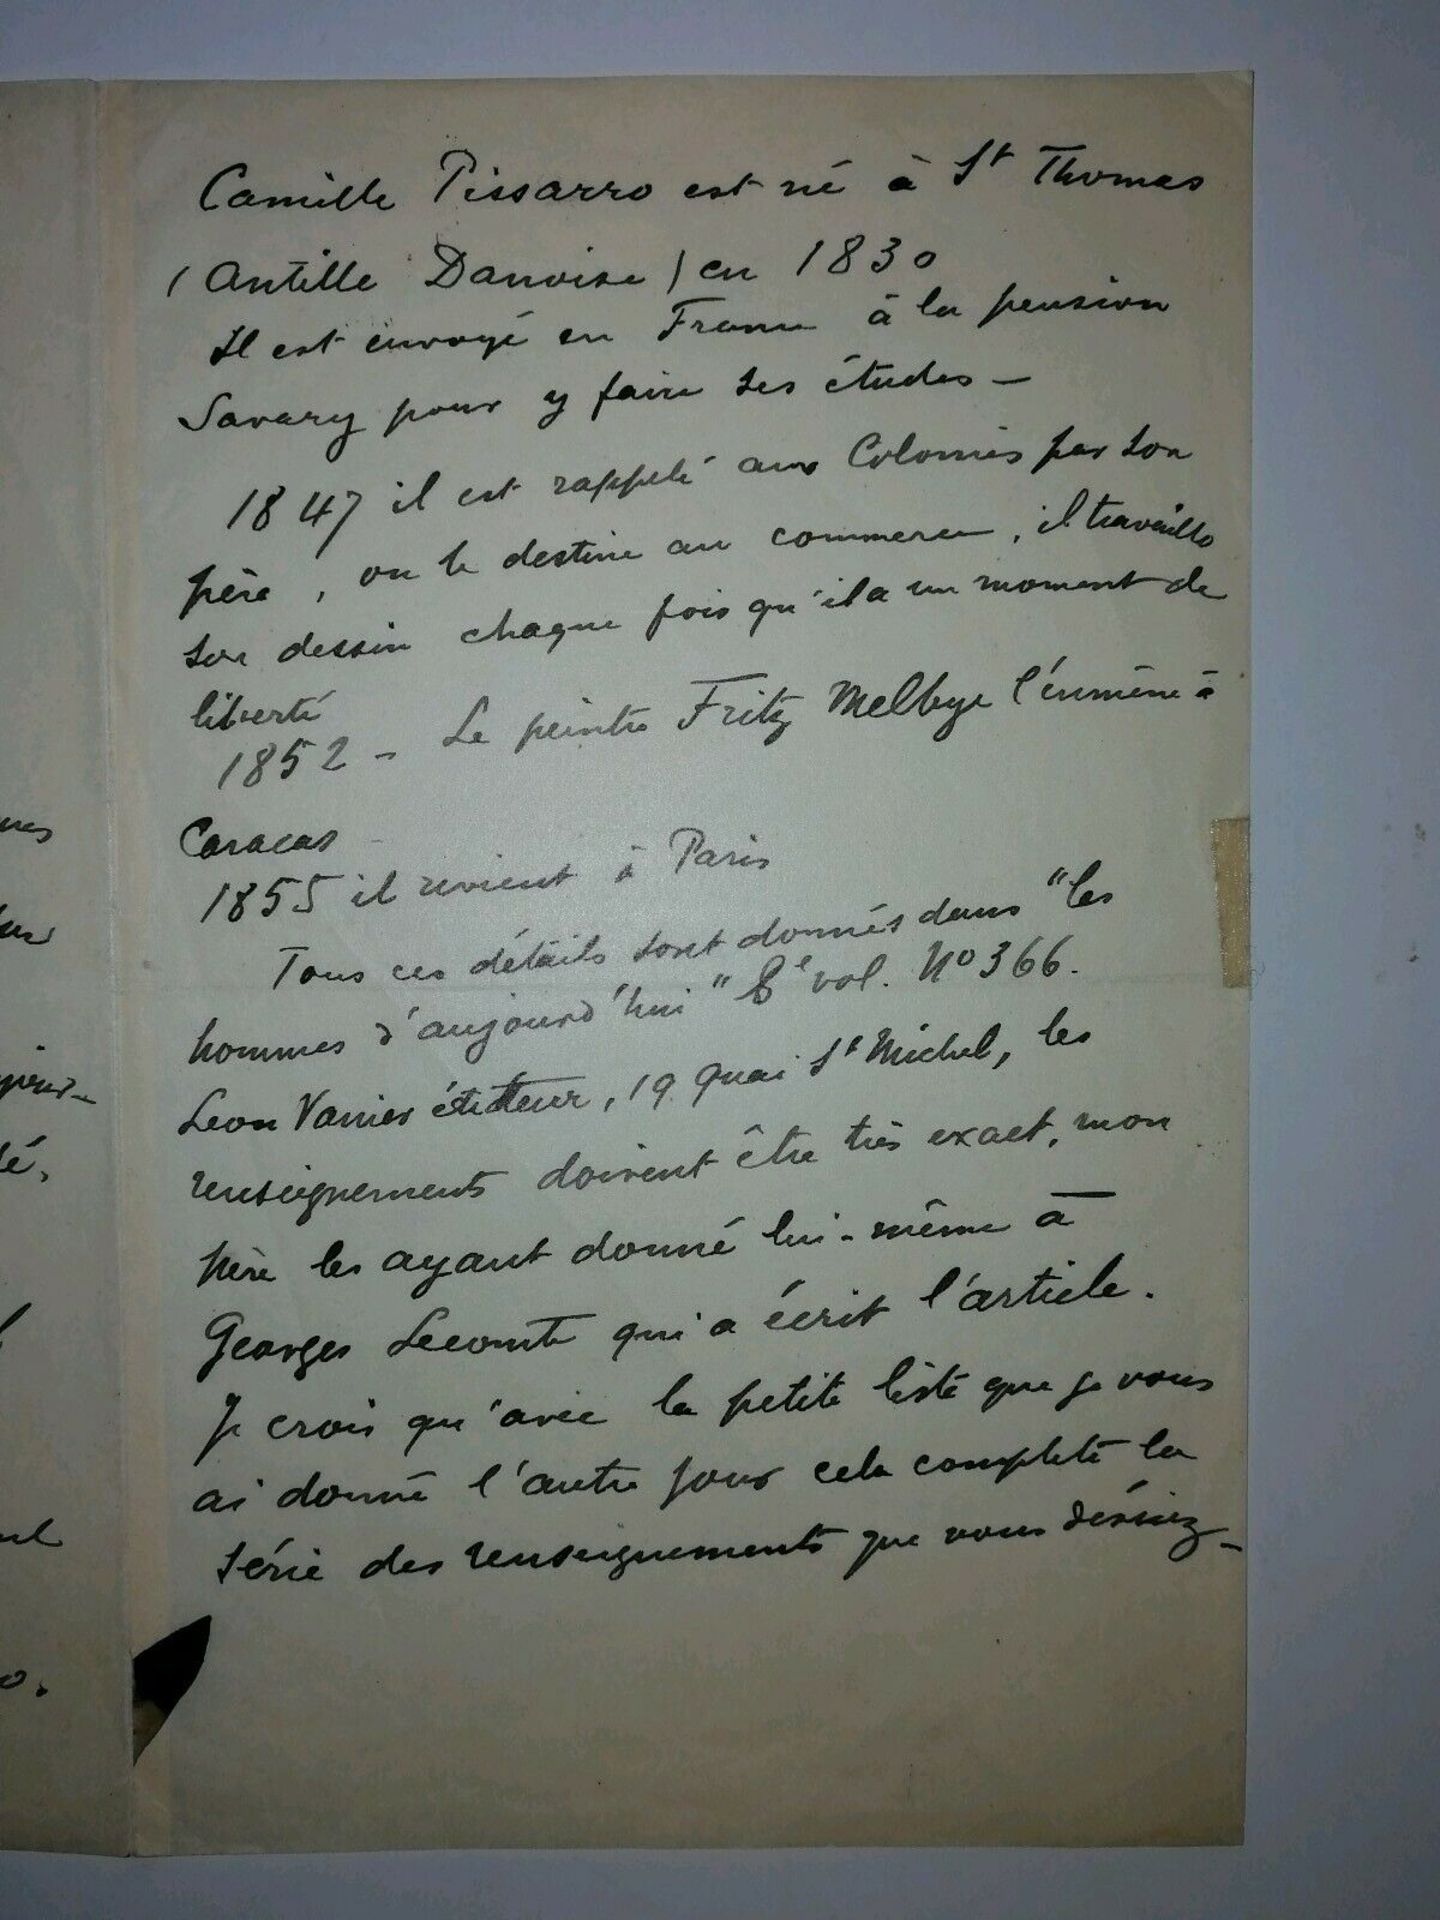 Camille Pissarro est né à St Thomas
(Antille Danoise) en 1830
Il est envoyé en France à la pension
Savary pour y faire ses études –
1847 il est rappelé aux Colonies par son
père, on le destine au commerce, il travaille
son dessin chaque fois qu'il a un moment de
liberté
1852 – Le peintre Fritz Melbye l'emmène à
Caracas
1855 il revient à Paris
Tous ces détails sont donnés dans "les
hommes d'aujourd'hui" 8e vol. No 366.
Leon Vanier éditeur, 19 Quai St Michel, les
renseignements doivent être très exact, mon
père les ayant donné lui-même à
Georges Lecomte qui a écrit l'article.
Je crois qu'avec la petite liste que je vous
ai donné l'autre jour cela complète la
série des renseignements que vous désiriez –
nes
é,
o.